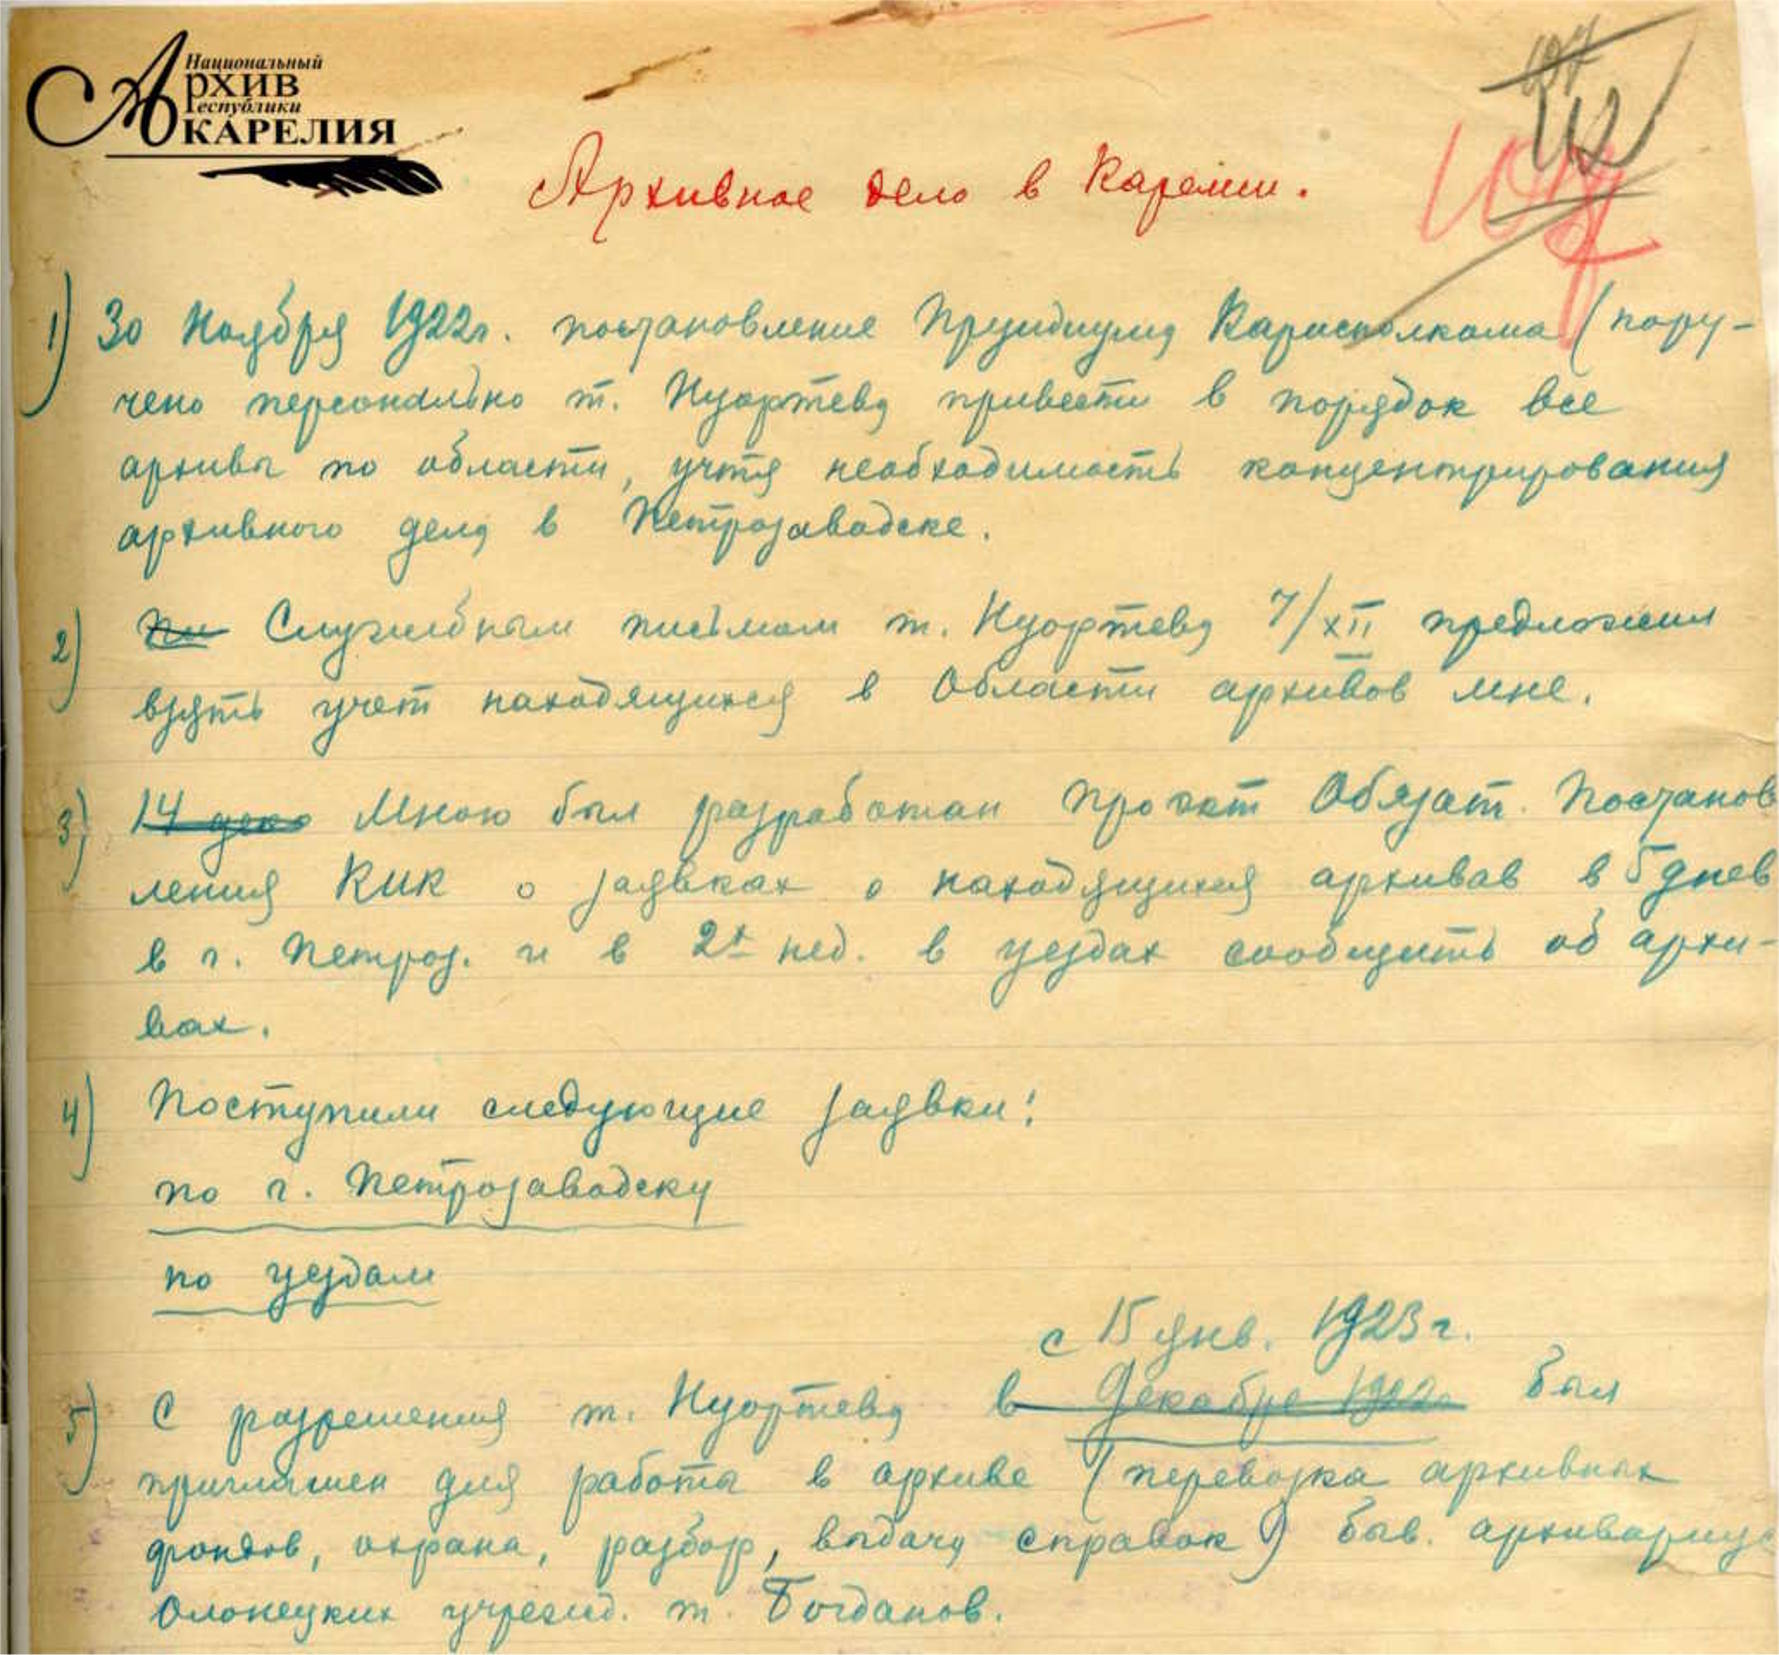 Национальный
Архив
Республики
Карелия
107
112
107
Архивное дело в Карелии.
1) 30 Ноября 1922г. постановление Президиума Карисполкома (пору-
чено персонально т. Нуортева привести в порядок все
архивы по области, учтя необходимость концентрирования
архивного дела в Петрозаводске.
2) По Служебным письмом т. Нуортева 7/XII предложил
взять учет находящихся в Области архивов мне.
3) 14 дека Мною был разработан проэкт Обязат. Постанов
ления КИК о заявках о находящихся архивов в 5 днев
в г. Петроз. и в 2х нед. в уездах сообщить об архи-
вах.
4) Поступили следующие заявки:
по г. Петрозаводску
по уездам
с 15 янв. 1923 г.
5) С разрешения т. Нуортева в Декабре 1922г. был
приглашен для работы в архиве (перевозка архивных
фондов, охрана, разбор, выдача справок) быв. архивариус
Олонецких учрежд. т. Богданов.